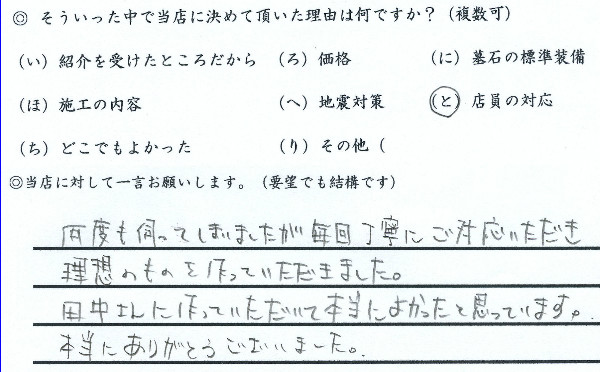 ◎ そういった中で当店に決めて頂いた理由は何ですか？（複数可）
（い）紹介を受けたところだから （ろ）価格 （に）墓石の標準装備
（ほ）施工の内容 （へ）地震対策 （と）店員の対応
（ち）どこでもよかった （り）その他（
◎当店に対して一言お願いします。（要望でも結構です）
何度も伺ってしまいましたが毎回丁寧にご対応いただき
理想のものを作っていただきました。
田中さんに作っていただいて本当によかったと思っています。
本当にありがとうございました。